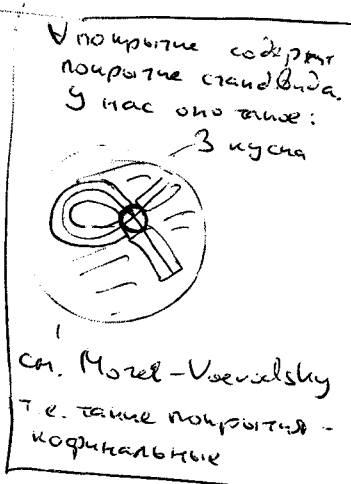 ∀ покрытие содержит
покрытие станд. вида.
У нас оно такое:
3 куска
см. Morel-Voevodsky
т.е. такие покрытия -
кофинальные